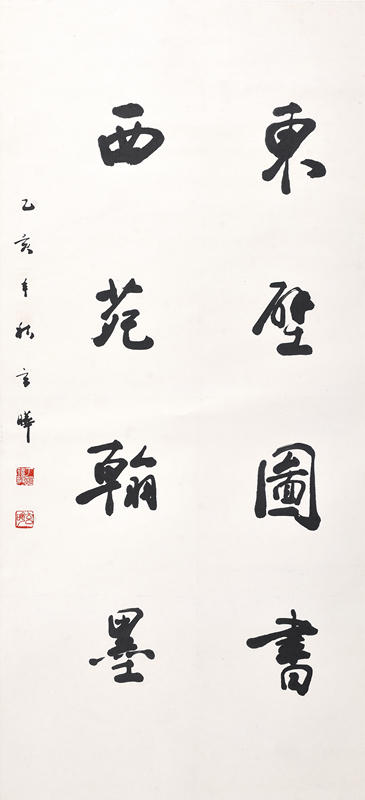 東壁圖書
西苑翰墨
乙亥年秋 言曄